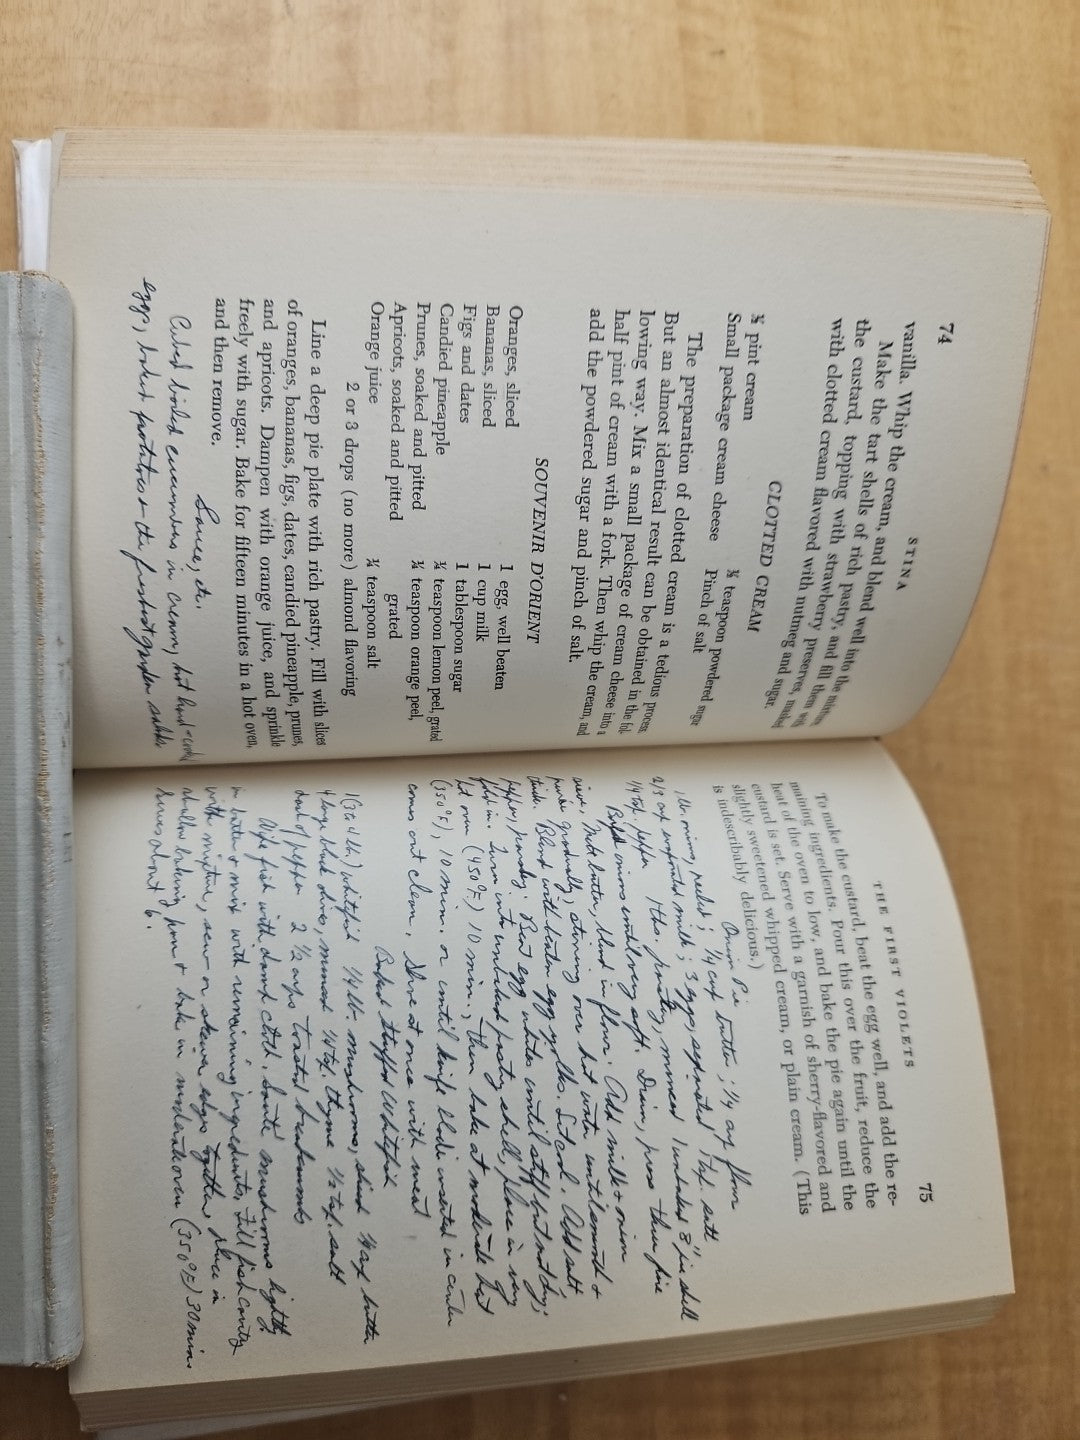 74
STINA
vanilla. Whip the cream, and blend well into the
Make the tart shells of rich pastry, and fill them with
the custard, topping with strawberry preserves, masked
with clotted cream flavored with nutmeg and sugar.
CLOTTED CREAM
½ pint cream
Small package cream cheese
¾ teaspoon powdered sugar
Pinch of salt
The preparation of clotted cream is a tedious process.
But an almost identical result can be obtained in the fol-
lowing way. Mix a small package of cream cheese into a
half pint of cream with a fork. Then whip the cream, and
add the powdered sugar and pinch of salt.
SOUVENIR D'ORIENT
Oranges, sliced
Bananas, sliced
Figs and dates
Candied pineapple
Prunes, soaked and pitted
Apricots, soaked and pitted
Orange juice
1 egg, well beaten
1 cup milk
1 tablespoon sugar
¼ teaspoon lemon peel, grated
¼ teaspoon orange peel,
grated
¼ teaspoon salt
2 or 3 drops (no more) almond flavoring
Line a deep pie plate with rich pastry. Fill with slices
of oranges, bananas, figs, dates, candied pineapple, prunes,
and apricots. Dampen with orange juice, and sprinkle
freely with sugar. Bake for fifteen minutes in a hot oven,
and then remove.
Sauces, etc.
Cubed boiled cucumbers in cream, hot hard-cooked
eggs, boiled potatoes & the freshest garden salads
THE FIRST VIOLETS
75
To make the custard, beat the egg well, and add the re-
maining ingredients. Pour this over the fruit, reduce the
heat of the oven to low, and bake the pie again until the
custard is set. Serve with a garnish of sherry-flavored and
slightly sweetened whipped cream, or plain cream. (This
is indescribably delicious.)
Onion Pie
1 lb. onions, peeled; ¼ cup butter; ¼ cup flour
2/3 cup evaporated milk; 3 eggs, separated 1 tsp. salt
¼ tsp. pepper 1 tbs. parsley, minced 1 unbaked 8" pie shell
Boil onions until very soft. Drain, press thru fine
sieve. Melt butter, blend in flour. Add milk & onion
purée gradually, stirring over hot water until smooth &
thick. Blend with beaten egg yolks. Let cool. Add salt,
pepper, parsley. Beat egg whites until stiff but not dry;
fold in. Turn into unbaked pastry shell, place in very
hot oven (450°F) 10 min., then bake at moderate heat
(350°F), 10 min. or until knife blade inserted in center
comes out clean. Serve at once with meat
Baked Stuffed Whitefish
1 (3 to 4 lb.) whitefish ¼ lb. mushrooms, sliced ¼ cup butter
4 large black olives, minced ¼ tsp. thyme ½ tsp. salt
dash of pepper 2 ½ cups toasted breadcrumbs
Wipe fish with damp cloth. Sauté mushrooms lightly
in butter & mix with remaining ingredients. Fill fish cavity
with mixture, sew or skewer edges together, place in
shallow baking pan & bake in moderate oven (350°F) 30 min.
Serves about 6.